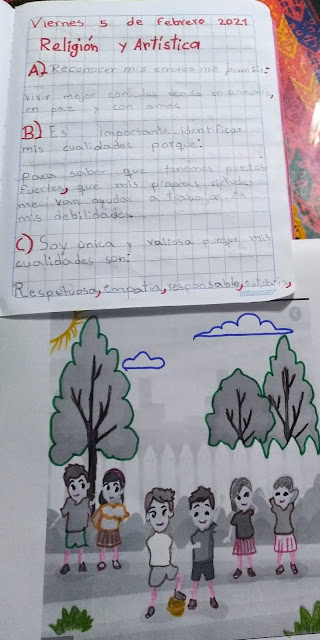 Viernes 5 de Febrero 2021
Religión y Artística
A) Reconocer mis errores me permite:
Vivir mejor con las demás
en paz y con amor.
B) Es importante identificar
mis cualidades porque:
para saber que tenemos puntos
fuertes, que mis propias
me van ayudar a trabajar en
mis debilidades.
C) Soy única y valiosa porque mis
cualidades son:
Respetuosa, empatía, responsable, solidaria,